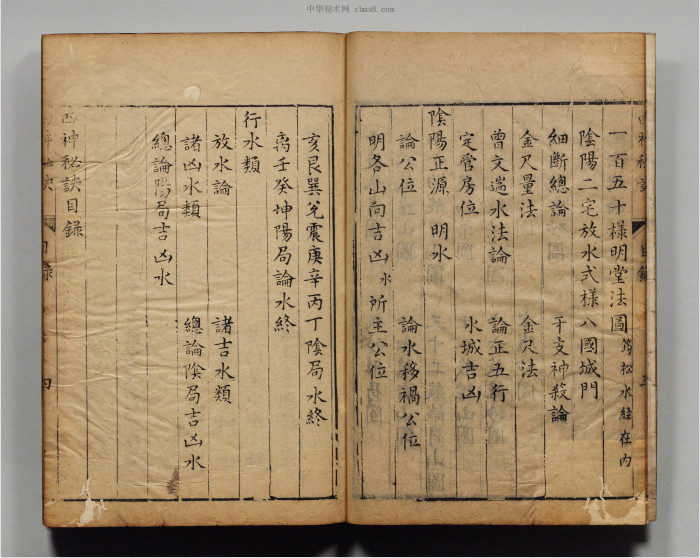 中华秘术网 zhms8.com
一百五十樣明堂法圖 筠松水經在内
陰陽二宅放水式樣 八國城門
細斷總論 干支神殺論
金尺量法 金尺法
曾文遄水法論 論正五行
定管房位 水城吉凶
陰陽正源 明水
論公位 論水移禍公位
明各山向吉凶水 所主公位
亥艮巽兌震庚辛丙丁陰局水終
离壬癸坤陽局論水終
行水類
放水論 諸吉水類
諸凶水類 總論陰局吉凶水
總論陽局吉凶水
神秘訣目録